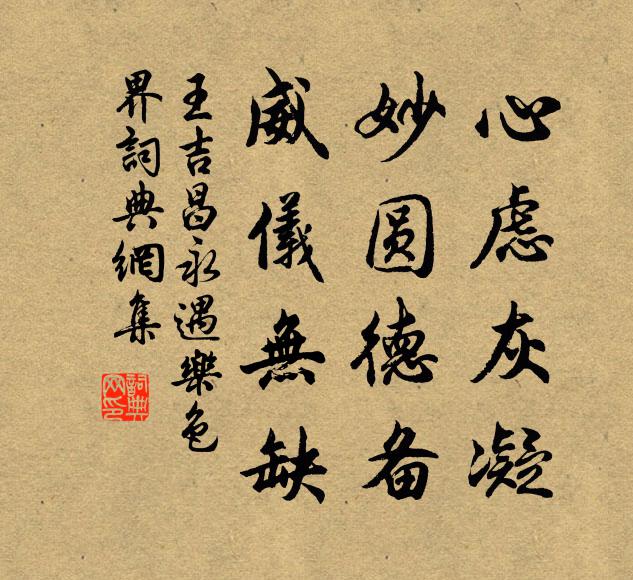 心虑灰凝
妙圆德备
威儀無缺
王吉昌永遇樂色
界詞典網集
詞典網印